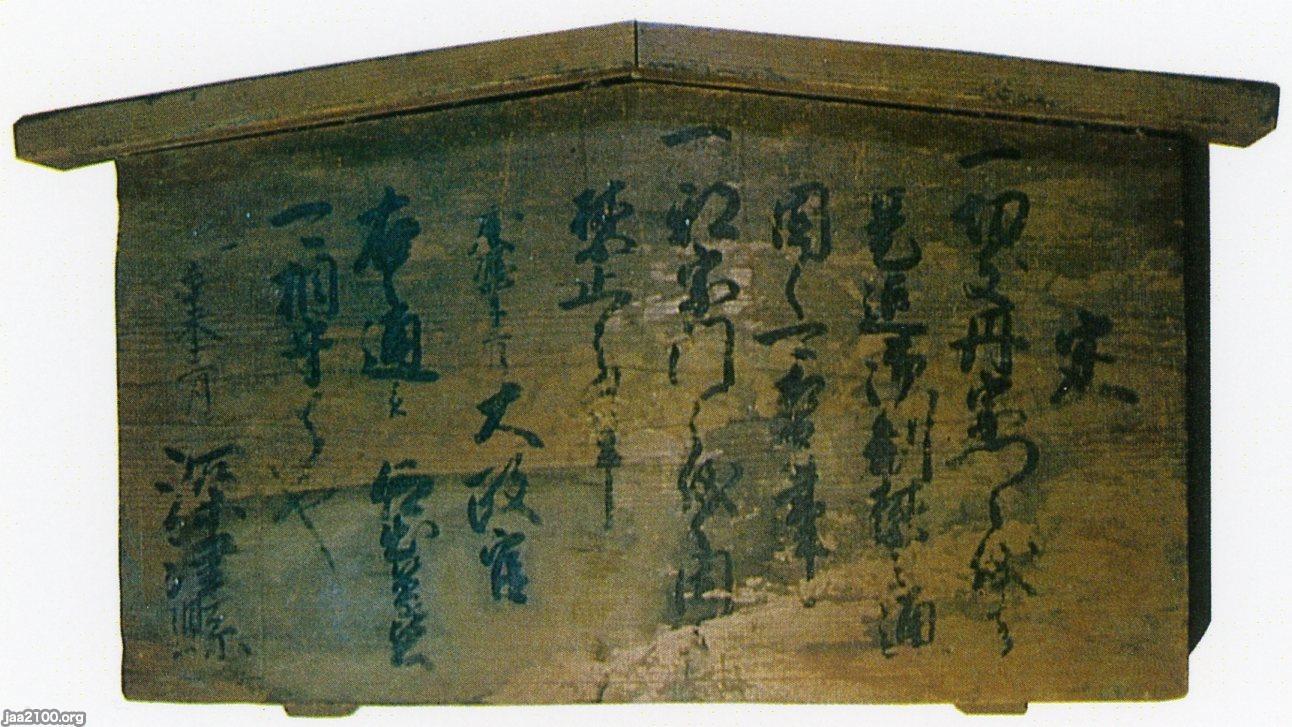 定
一切支丹宗門之儀ハ
是迄御制禁之通
固く可相守事
一邪宗門之儀ハ固く
禁止之事
慶應四年三月 太政官
右 通
可相守もの也
辛未 月 深津縣
jaa2100.org